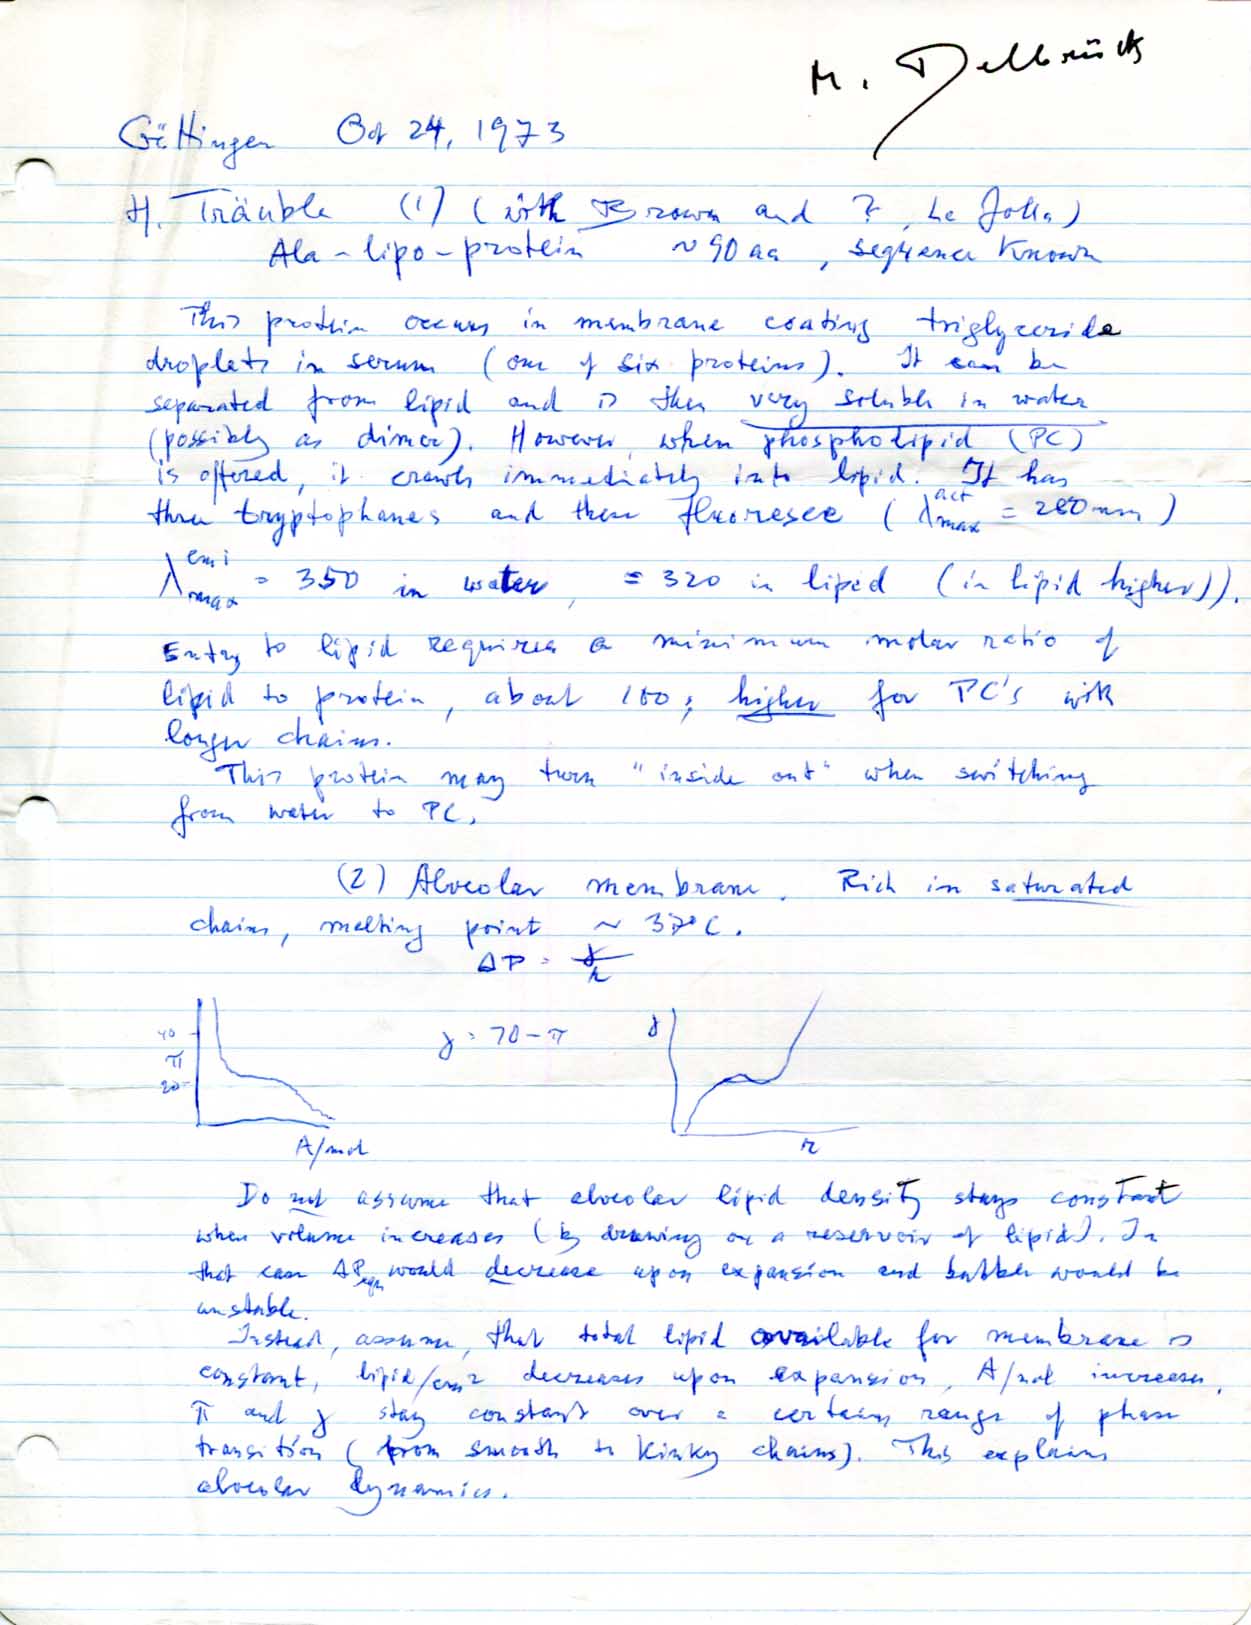 M. Delbrück
Göttingen Oct 24, 1973
H. Träuble (1) (with Brown and ?, La Jolla)
Ala-lipo-protein ~90 aa, sequence known
This protein occurs in membrane coating triglyceride
droplets in serum (one of six proteins). It can be
separated from lipid and is then very soluble in water
(possibly as dimer). However, when phospholipid (PC)
is offered, it crawls immediately into lipid. It has
three tryptophanes and these fluoresce (λ act max = 280 nm)
λ emi max = 350 in water, = 320 in lipid (in lipid higher)).
Entry to lipid requires a minimum molar ratio of
lipid to protein, about 100; higher for PC's with
longer chains.
This protein may turn "inside out" when switching
from water to PC.
(2) Alveolar membrane. Rich in saturated
chains, melting point ~ 37°C.
ΔP = γ/r
40
π
20
A/mol
γ = 70 - π
γ
r
Do not assume that alveolar lipid density stays constant
when volume increases (by drawing on a reservoir of lipid). In
that case ΔP eqn would decrease upon expansion and bubble would be
unstable.
Instead, assume, that total lipid available for membrane is
constant, lipid/cm² decreases upon expansion, A/mol increases,
π and γ stay constant over a certain range of phase
transition (from smooth to kinky chains). This explains
alveolar dynamics.